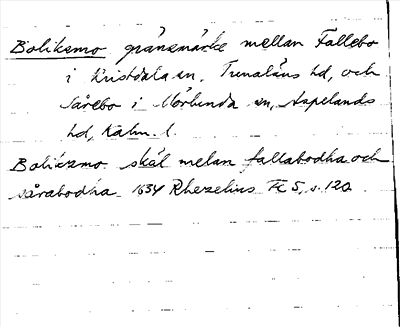 Boliksmo gränsmärke mellan Fallebo
i Kristdala sn, Tunaläns hd, och
Sårebo i Mörlunda sn, Aspelands
hd, Kalm. l.
Boliczmo skäl melan fallabodha och
sårabodha 1634 Rhezelius Fc 5, s. 120